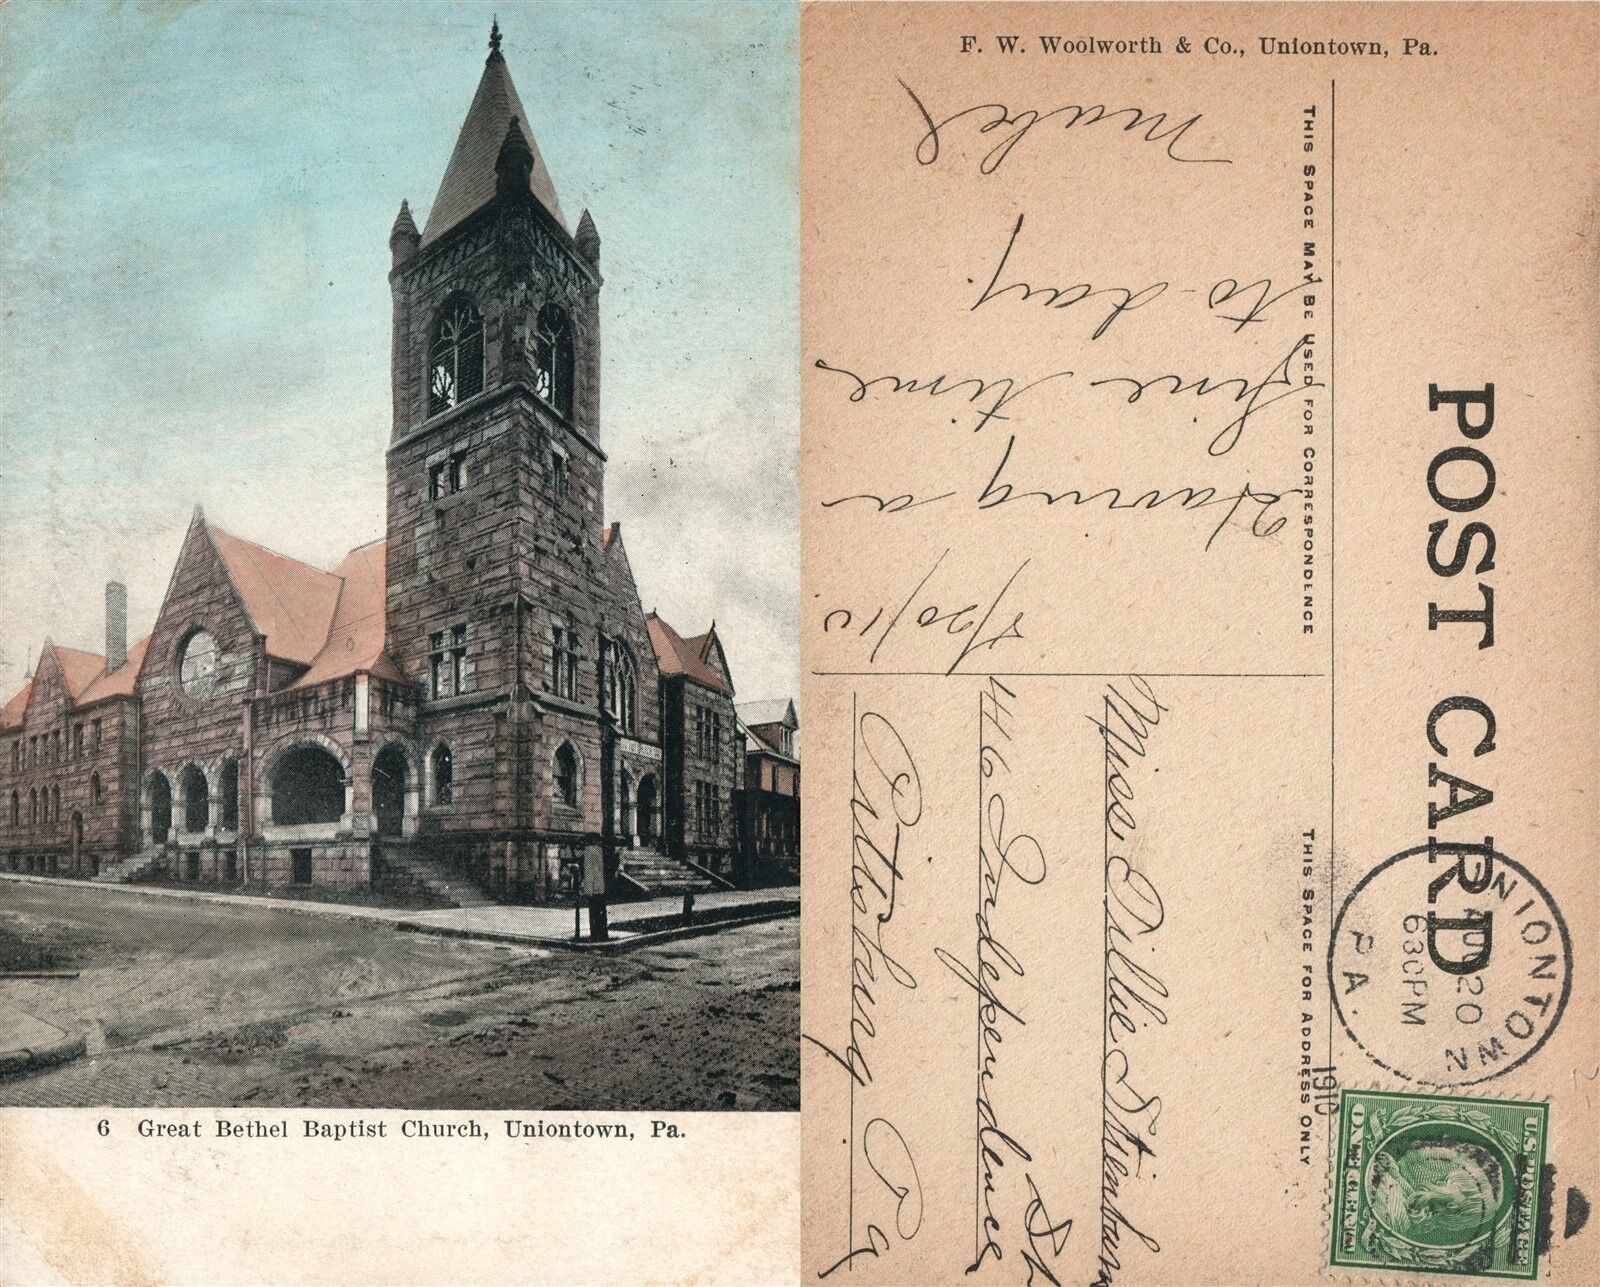 6 Great Bethel Baptist Church, Uniontown, Pa.
F. W. Woolworth & Co., Uniontown, Pa.
POST CARD
THIS SPACE MAY BE USED FOR CORRESPONDENCE
THIS SPACE FOR ADDRESS ONLY
8/20/10
Having a
fine time
to-day.
Mabel
Miss Tillie Stienbaum
446 Independence St
Pittsburg Pa
UNIONTOWN
AUG 20
630PM
1910
PA.
U.S. POSTAGE
ONE CENT